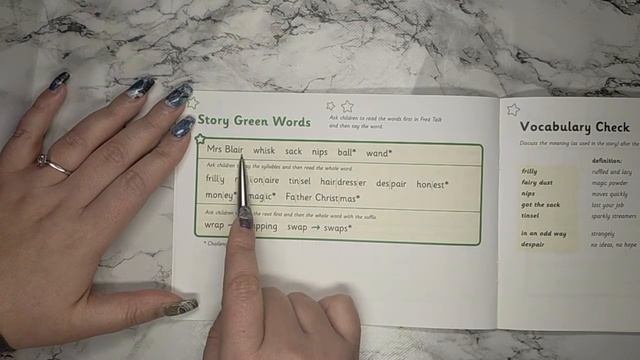 Story Green Words
Ask children to read the words first in Fred Talk
and then say the word.
Mrs Blair whisk sack nips ball* wand*
Ask children to say the syllables and then read the whole word.
frilly tinsel hairdresser despair honest*
money* magic* Father Christmas*
Ask children the root first and then the whole word with the suffix.
wrap → swap → swaps*
Vocabulary Check
Discuss the meaning (as used in the story) after the
definition:
frilly ruffled and lacy
fairy dust magic powder
nips moves quickly
got the sack lost your job
tinsel sparkly streamers
in an odd way strangely
despair no ideas, no hope